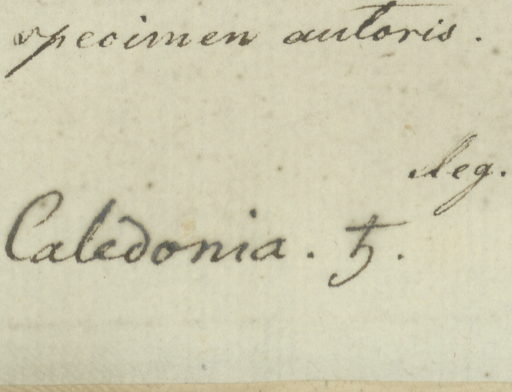 specimen autoris.
leg.
Caledonia. ♄.